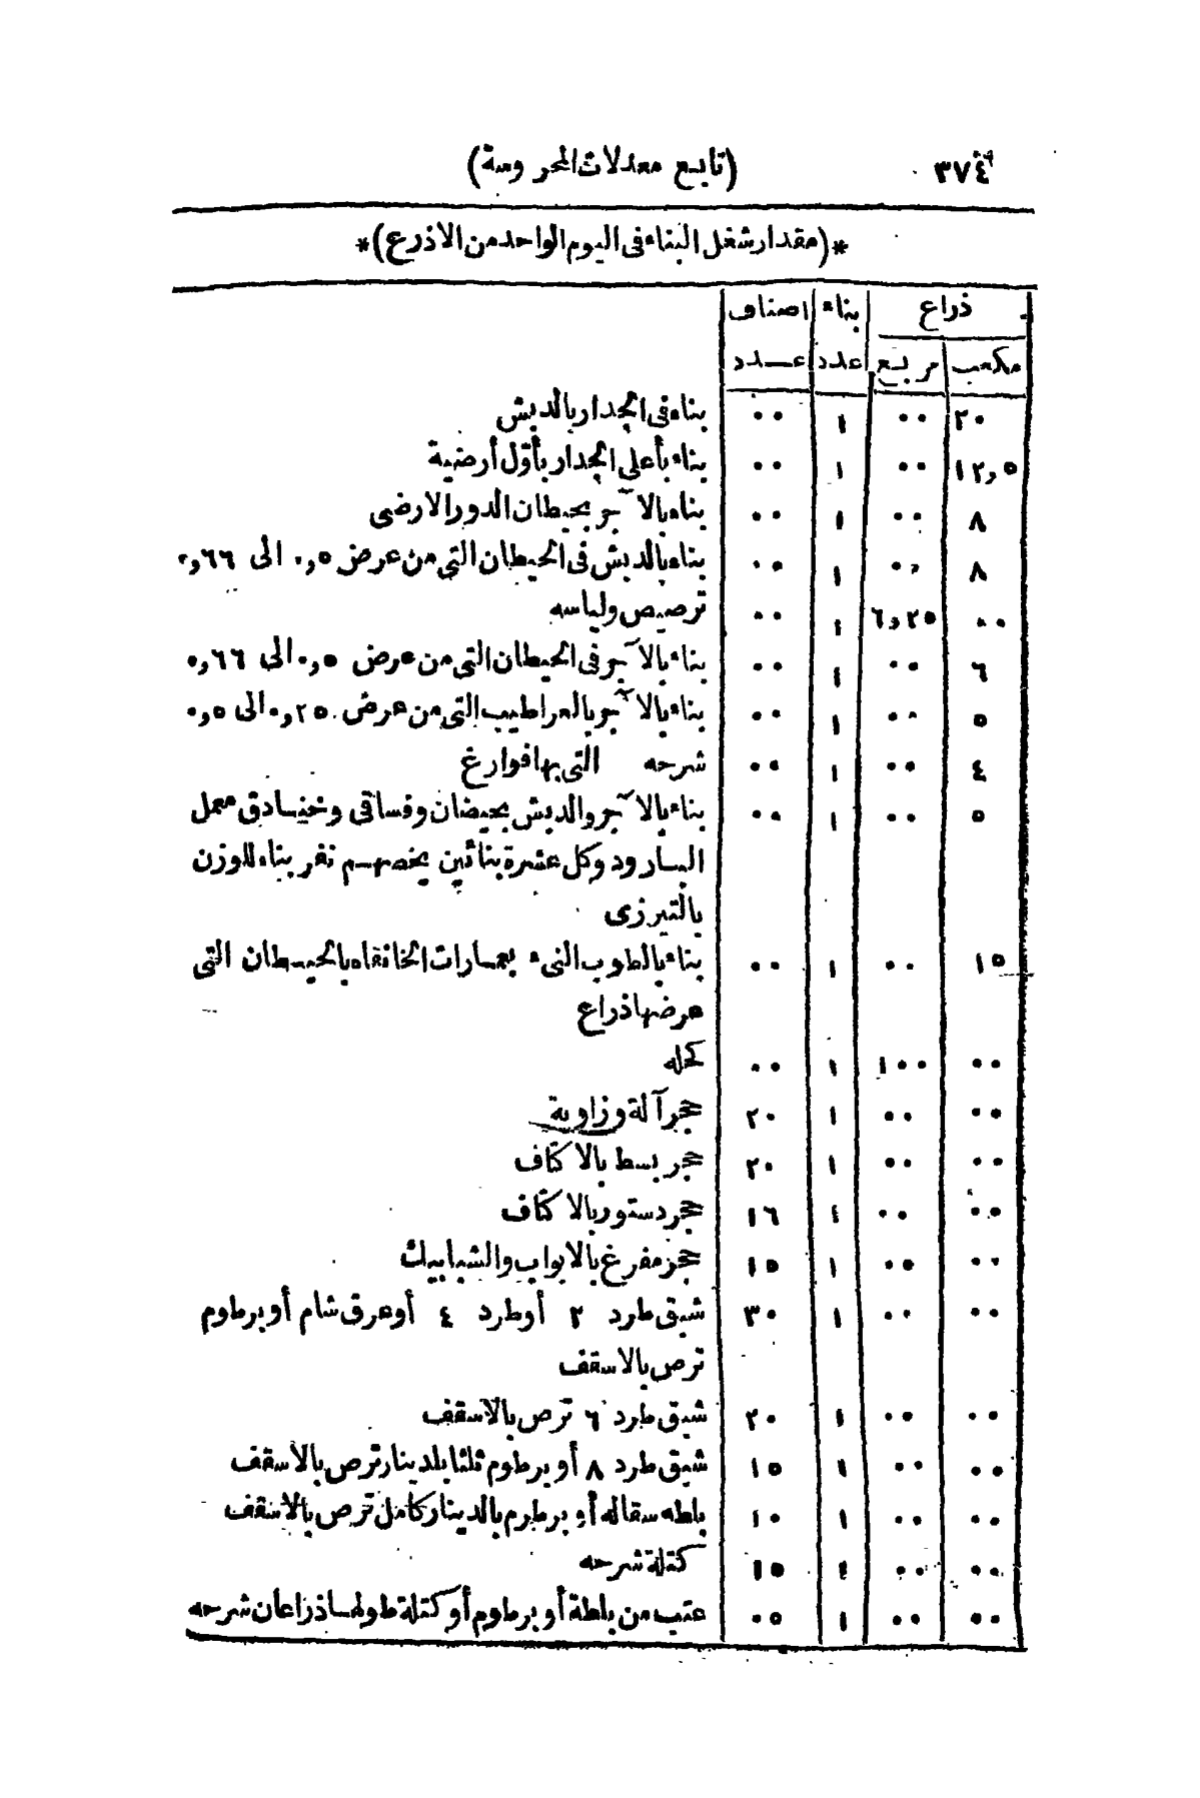 ٣٧٤ (تابع معدلات المحروسة)
*(مقدار شغل البناء فى اليوم الواحد من الاذرع)*
ذراع بناء اصناف
مكعب مربع عدد عدد
٢٠ ٠٠ ١ ٠٠ بناء فى الجدار بالدبش
١٢٫٥ ٠٠ ١ ٠٠ بناء بأعلى الجدار بأول أرضية
٨ ٠٠ ١ ٠٠ بناء بالآجر بحيطان الدور الارضى
٨ ٠٠ ١ ٠٠ بناء بالدبش فى الحيطان التى من عرض ٠٫٥ الى ٠٫٦٦
٠٠ ٦٫٢٥ ١ ٠٠ ترصيص ولياسه
٦ ٠٠ ١ ٠٠ بناء بالآجر فى الحيطان التى من عرض ٠٫٥ الى ٠٫٦٦
٥ ٠٠ ١ ٠٠ بناء بالآجر بالعراطيب التى من عرض ٠٫٢٥ الى ٠٫٥
٤ ٠٠ ١ ٠٠ شرحه التى بها فوارغ
٥ ٠٠ ١ ٠٠ بناء بالآجر والدبش بحيضان وفساقى وخنادق معمل
البارود وكل عشرة بنائين يخصهم نفر بناء للوزن
بالتيرزى
١٥ ٠٠ ١ ٠٠ بناء بالطوب النىء بعمارات الخانقاه بالحيطان التى
عرضها ذراع
٠٠ ١٠٠ ١ ٠٠ كحله
٠٠ ٠٠ ١ ٢٠ حجر آلة وزاوية
٠٠ ٠٠ ١ ٢٠ حجر بسط بالاكتاف
٠٠ ٠٠ ١ ١٦ حجر دستور بالاكتاف
٠٠ ٠٠ ١ ١٥ حجر مفرغ بالابواب والشبابيك
٠٠ ٠٠ ١ ٣٠ شبق طرد ٢ أو طرد ٤ أو عرق شام أو برطوم
ترص بالاسقف
٠٠ ٠٠ ١ ٢٠ شبق طرد ٦ ترص بالاسقف
٠٠ ٠٠ ١ ١٥ شبق طرد ٨ أو برطوم ثلثا بلدينار ترص بالاسقف
٠٠ ٠٠ ١ ١٠ بلطه سقاله أو برطوم بالدينار كامل ترص بالاسقف
٠٠ ٠٠ ١ ١٥ كتلة شرحه
٠٠ ٠٠ ١ ٠٥ عتب من بلطة أو برطوم أو كتلة طولها ذراعان شرحه